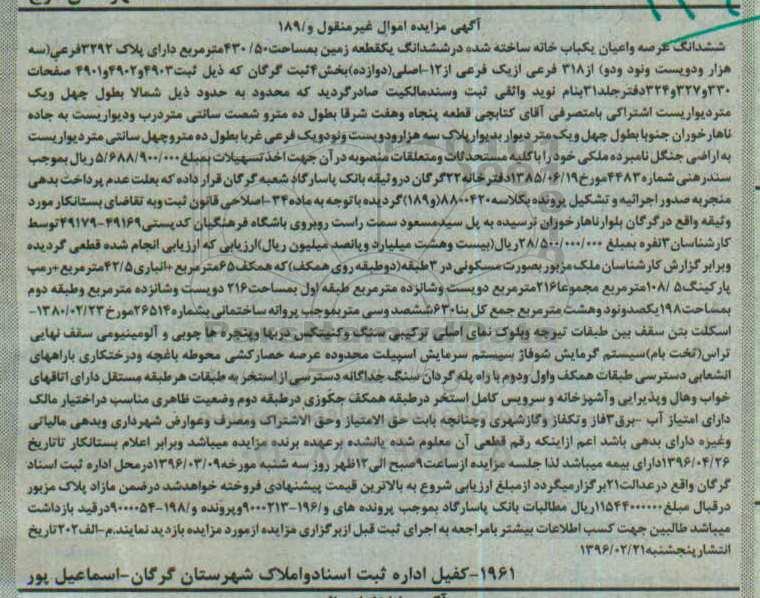 آگهی مزایده اموال غیرمنقول و/۱۸۹
ششدانگ عرصه واعیان یکباب خانه ساخته شده درششدانگ یکقطعه زمین بمساحت۴۳۰/۵۰مترمربع دارای پلاک ۳۲۹۲فرعی(سه
هزار ودویست ونود ودو) از۳۱۸ فرعی ازیک فرعی از۱۲-اصلی(دوازده)بخش۴ثبت گرگان که ذیل ثبت۴۹۰۳و۴۹۰۲و۴۹۰۱ صفحات
۳۳۰و۳۲۷و۳۲۴دفترجلد۳۱بنام نوید وانقی ثبت وسندمالکیت صادرگردید که محدود به حدود ذیل شمالا بطول چهل ویک
متردیواریست اشتراکی بامتصرفی آقای کتابچی قطعه پنجاه وهفت شرقا بطول ده مترو شصت سانتی متردرب ودیواریست به جاده
ناهارخوران جنوبا بطول چهل ویک متر دیوار بدیوارپلاک سه هزارودویست ونودویک فرعی غربا بطول ده متروچهل سانتی متردیواریست
به اراضی جنگل نامبرده ملکی خود را باکلیه مستحدثات ومتعلقات منصوبه در آن جهت اخذ تسهیلات بمبلغ۵/۶۸۸/۹۰۰/۰۰۰ ریال بموجب
سندرهنی شماره۴۴۸۳مورخ۱۳۸۵/۰۶/۱۹دفترخانه۲۲گرگان دروثیقه بانک پاسارگاد شعبه گرگان قرار داده که بعلت عدم پرداخت بدهی
منجربه صدور اجرائیه و تشکیل پرونده بکلاسه۸۸۰۰۴۲۰(و۱۸۹)گردیده باتوجه به ماده۳۴-اصلاحی قانون ثبت وبه تقاضای بستانکار مورد
وثیقه واقع درگرگان بلوارناهارخوران نرسیده به پل سیدمسعود سمت راست روبروی باشگاه فرهنگیان کدپستی۴۹۱۶۹-۴۹۱۷۹توسط
کارشناسان۳نفره بمبلغ ۲۸/۵۰۰/۰۰۰/۰۰۰ریال(بیست وهشت میلیارد وپانصد میلیون ریال)ارزیابی که ارزیابی انجام شده قطعی گردیده
وبرابر گزارش کارشناسان ملک مزبور بصورت مسکونی در ۳طبقه(دوطبقه روی همکف)که همکف۶۵مترمربع +انباری۴۲/۵مترمربع+رمپ
پارکینگ۱۰۸/۵مترمربع مجموعا۲۱۶مترمربع دویست وشانزده مترمربع طبقه اول بمساحت۲۱۶ دویست وشانزده مترمربع وطبقه دوم
بمساحت۱۹۸یکصدونود وهشت مترمربع جمع کل بنا۶۳۰ششصد وسی متربموجب پروانه ساختمانی بشماره۲۶۵۱۴مورخ۱۳۸۰/۰۲/۲۳-
اسکلت بتن سقف بین طبقات تیرچه وبلوک نمای اصلی ترکیبی سنگ وکنیتکس دربها وپنجره ها چوبی و آلومینیومی سقف نهایی
تراس(تخت بام)سیستم گرمایش شوفاژ سیستم سرمایش اسپیلت محدوده عرصه حصارکشی محوطه باغچه ودرختکاری باراههای
انشعابی دسترسی طبقات همکف واول ودوم با راه پله گردان سنگ جداگانه دسترسی از استخر به طبقات هرطبقه مستقل دارای اتاقهای
خواب وهال وپذیرایی وآشپزخانه و سرویس کامل استخر درطبقه همکف جکوزی درطبقه دوم وضعیت ظاهری مناسب دراختیار مالک
دارای امتیاز آب -برق۳فاز وتکفاز وگازشهری وچنانچه بابت حق الامتیاز وحق الاشتراک ومصرف وعوارض شهرداری وبدهی مالیاتی
وغیره دارای بدهی باشد اعم ازاینکه رقم قطعی آن معلوم شده یانشده برعهده برنده مزایده میباشد وبرابر اعلام بستانکار تاتاریخ
۱۳۹۶/۰۴/۲۶دارای بیمه میباشد لذا جلسه مزایده ازساعت۹صبح الی۱۲ظهر روز سه شنبه مورخه۱۳۹۶/۰۳/۰۹درمحل اداره ثبت اسناد
گرگان واقع درعدالت۲۱برگزارمیگردد ازمبلغ ارزیابی شروع به بالاترین قیمت پیشنهادی فروخته خواهدشد درضمن مازاد پلاک مزبور
درقبال مبلغ۱۱۵۴۴۰۰۰۰۰۰ریال مطالبات بانک پاسارگاد بموجب پرونده های و/۱۹۶-۹۰۰۰۲۱۳وپرونده و/۱۹۸-۹۰۰۰۰۵۴درقید بازداشت
میباشد طالبین جهت کسب اطلاعات بیشتر بامراجعه به اجرای ثبت قبل ازبرگزاری مزایده ازمورد مزایده بازدید نمایند.م-الف۲۰۲تاریخ
انتشارپنجشنبه۱۳۹۶/۰۲/۲۱
۱۹۶۱-کفیل اداره ثبت اسنادواملاک شهرستان گرگان-اسماعیل پور